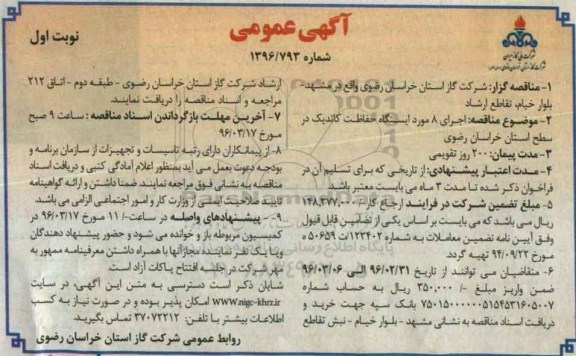 آگهی عمومی
نوبت اول
شماره ۱۳۹۶/۷۹۳
شرکت ملی گاز ایران
۱- مناقصه گزار: شرکت گاز استان خراسان رضوی واقع در مشهد-
بلوار خیام، تقاطع ارشاد
۲- موضوع مناقصه: اجرای ۸ مورد ایستگاه حفاظت کاتدیک در
سطح استان خراسان رضوی
۳- مدت پیمان: ۲۰۰ روز تقویمی
۴- مدت اعتبار پیشنهادی: از تاریخی که برای تسلیم آن در
فراخوان ذکر شده تا مدت ۳ ماه می بایست معتبر باشد.
۵- مبلغ تضمین شرکت در فرایند ارجاع کار:
ریال می باشد که می بایست بر اساس یکی از تضامین قابل قبول
وفق آیین نامه تضمین معاملات به شماره ۱۲۳۴۰۲/ت ۵۰۶۵۹ ه
مورخ ۹۴/۰۹/۲۲ تهیه گردد.
۶- متقاضیان می توانند از تاریخ ۹۶/۰۲/۳۱ الی ۹۶/۰۳/۰۶
ضمن واریز مبلغ -/ ۳۵۰,۰۰۰ ریال به شماره شبای
بانک سپه جهت خرید و
دریافت اسناد مناقصه به نشانی مشهد - بلوار خیام - نبش تقاطع
ارشاد شرکت گاز استان خراسان رضوی - طبقه دوم - اتاق ۲۱۲
مراجعه و اسناد مناقصه را دریافت نمایند.
۷- آخرین مهلت بازگرداندن اسناد مناقصه: ساعت ۹ صبح
مورخ ۹۶/۰۳/۱۷
۸- از پیمانکاران دارای رتبه تاسیسات و تجهیزات از سازمان برنامه و
بودجه دعوت بعمل می آید بمنظور اعلام آمادگی کتبی و دریافت اسناد
مناقصه به نشانی فوق مراجعه نمایند ضمنا داشتن و ارائه گواهینامه
تایید صلاحیت ایمنی از وزارت کار و امور اجتماعی الزامی می باشد.
۹- پیشنهادهای واصله در ساعت-/۱۱ مورخ ۹۶/۰۳/۱۷ در
کمیسیون مربوطه باز و خوانده می شود و حضور پیشنهاد دهندگان
ویا یک نفر نماینده مجاز آنها با همراه داشتن معرفینامه ممهور به
مهر شرکت در جلسه افتتاح پاکات آزاد است.
شایان ذکر است دسترسی به متن این آگهی، در سایت
www.nigc-khrz.ir امکان پذیر بوده و در صورت نیاز به کسب
اطلاعات بیشتر با تلفن: ۳۷۰۷۲۲۱۲ تماس بگیرید.
روابط عمومی شرکت گاز استان خراسان رضوی